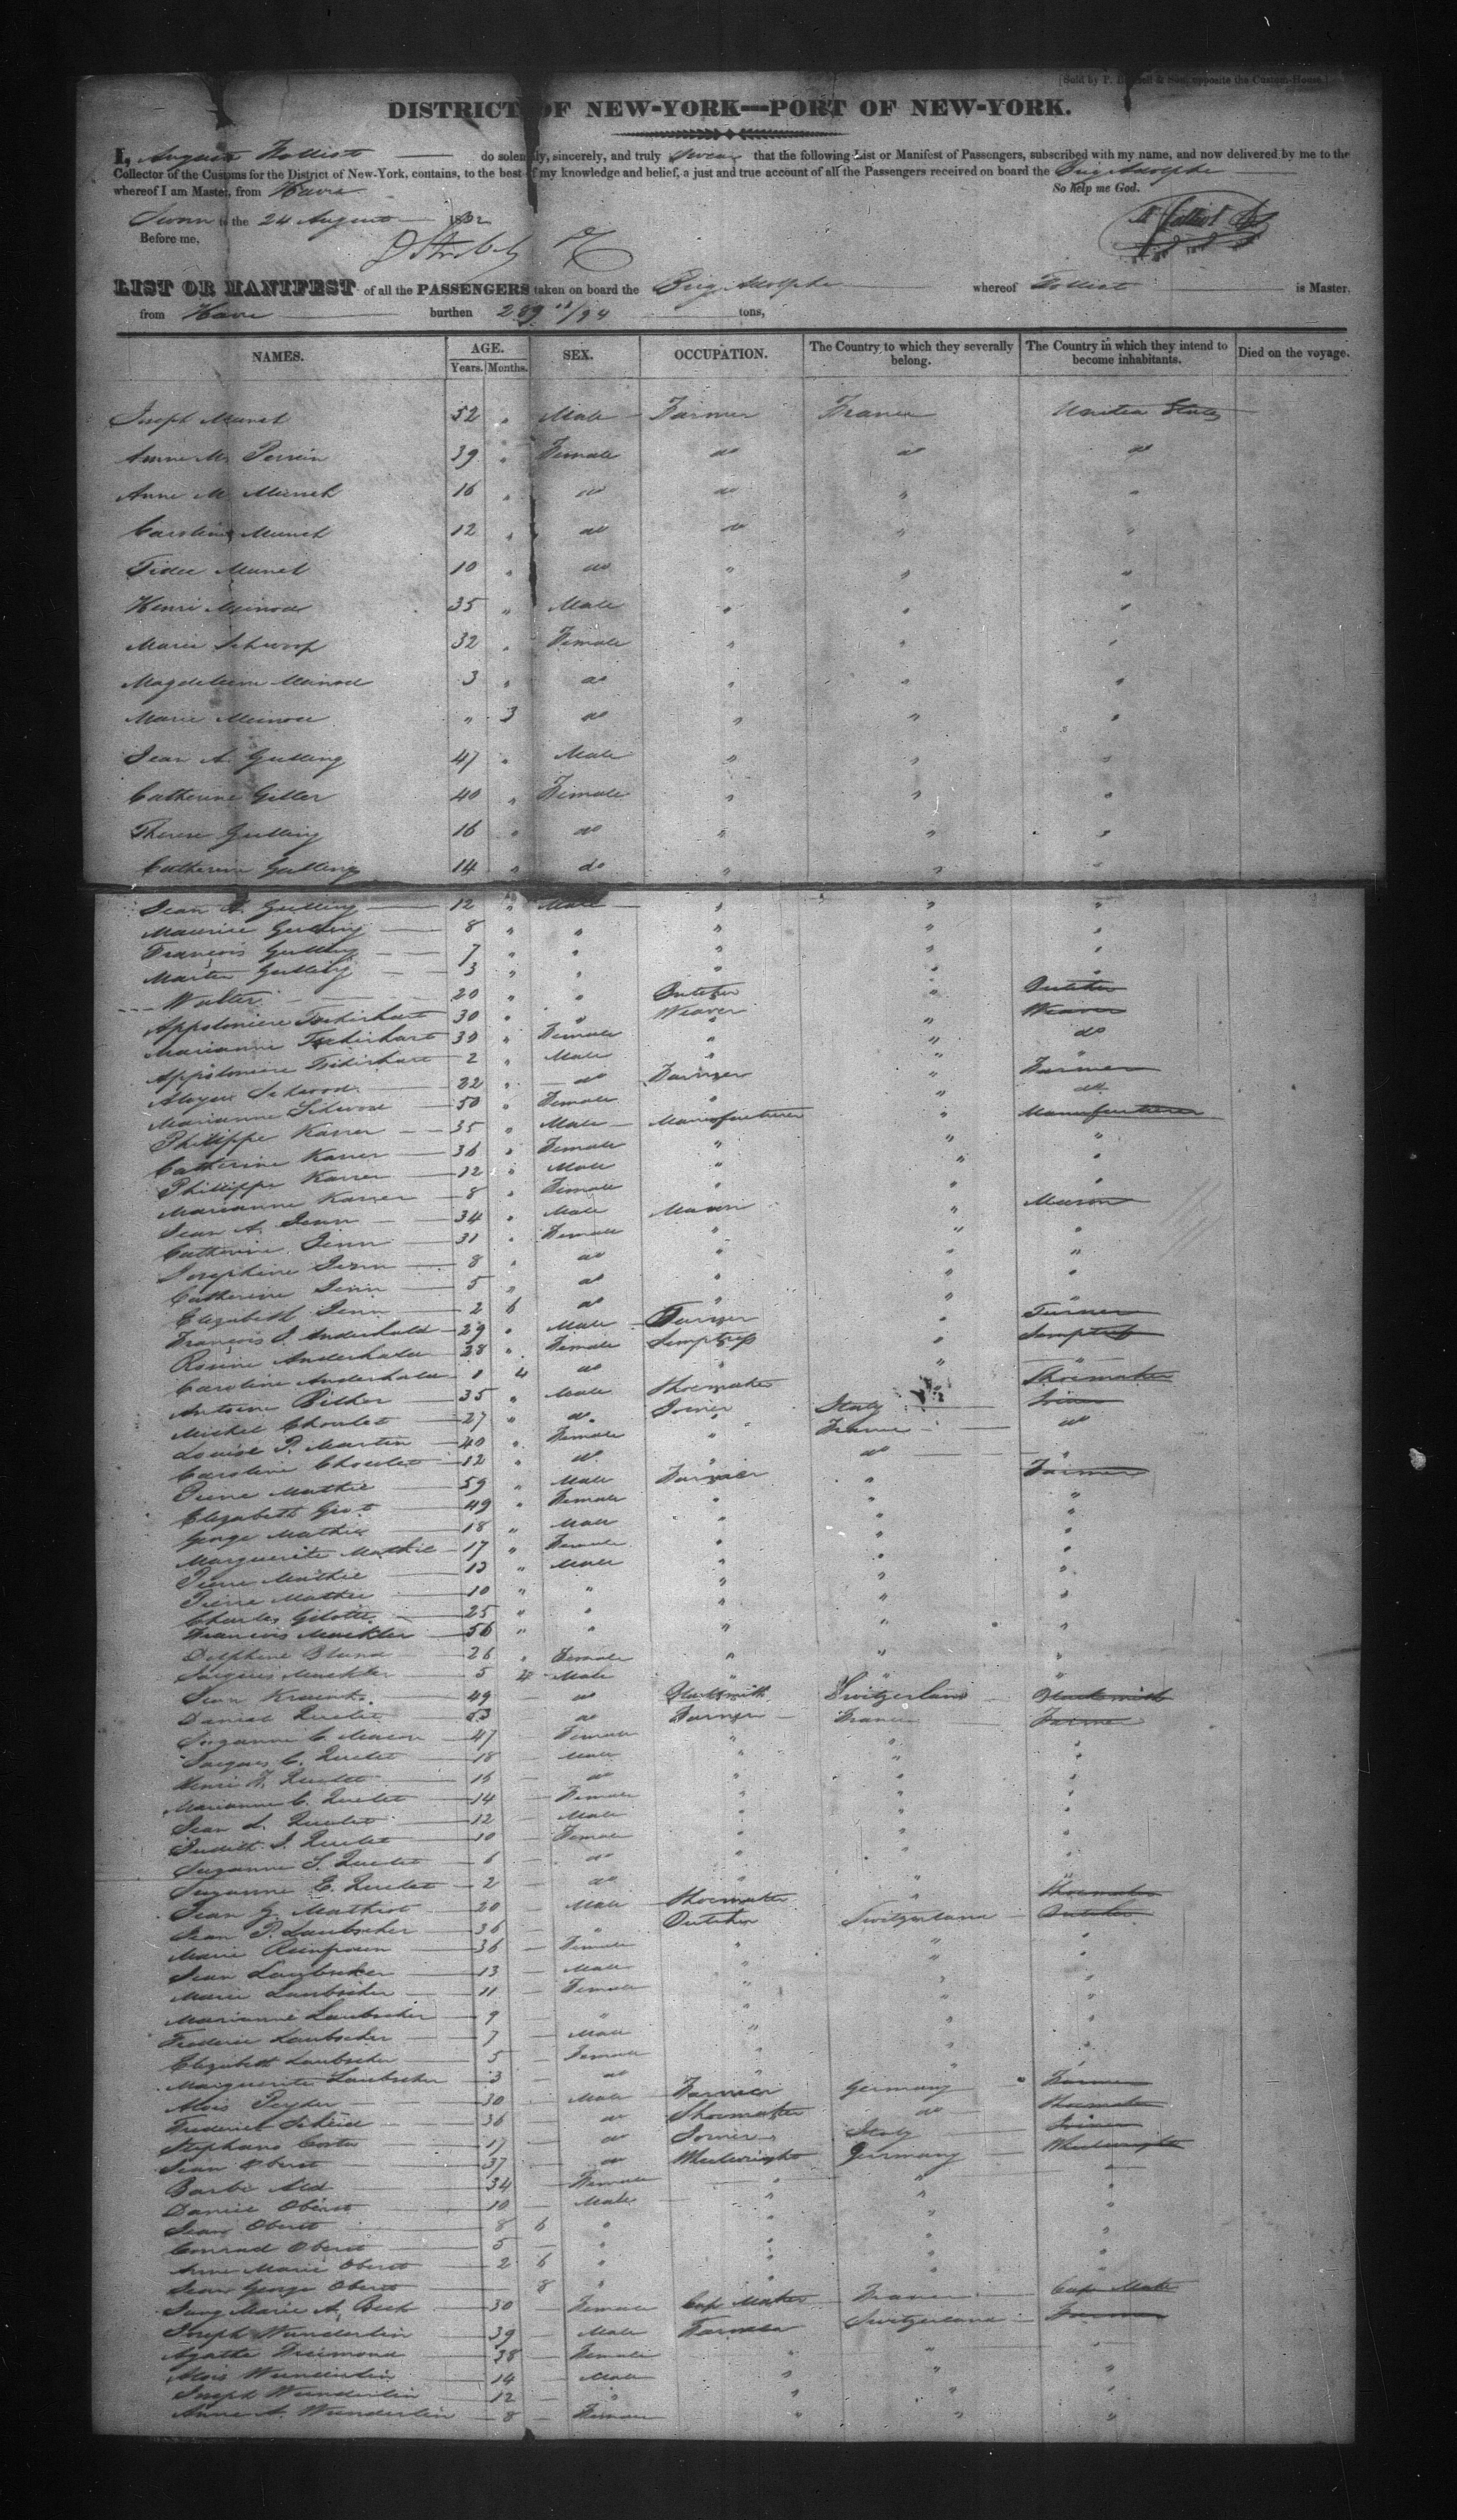 [Sold by P. & Son, opposite the Custom-House.]
DISTRICT OF NEW-YORK—PORT OF NEW-YORK.
I, do solemnly, sincerely, and truly swear that the following List or Manifest of Passengers, subscribed with my name, and now delivered by me to the
Collector of the Customs for the District of New-York, contains, to the best of my knowledge and belief, a just and true account of all the Passengers received on board the Brig Adolphe
whereof I am Master, from Havre So help me God.
Sworn to the 24 August 1832
Before me,
LIST OR MANIFEST of all the PASSENGERS taken on board the Brig Adolphe whereof is Master.
from Havre burthen tons,
NAMES. AGE. SEX. OCCUPATION. The Country to which they severally belong. The Country in which they intend to become inhabitants. Died on the voyage.
Years. Months.
Joseph Munch 52 " Male Farmer France United States
Anne M. Perrin 39 " Female do do do
Anne M. Munch 16 " do do " "
Caroline Munch 12 " do do " "
Munch 10 " do " " "
Henri Meinode 35 " Male " " "
Marie 32 " Female " " "
Magdeleine Meinode 3 " do " " "
Marie Meinode " 3 do " " "
Jean A. Gulling 47 " Male " " "
Catherine Geller 40 " Female " " "
Therese Gulling 16 " do " " "
Catherine Gulling 14 " do " " "
Jean A. Gulling 12 " Male " " "
Maurice Gulling 8 " " " " "
François Gulling 7 " " " " "
Martin Gulling 3 " " " " "
Walter 20 " " Butcher " Butcher
30 " " Weaver " Weaver
Marianne 30 " Female " " do
2 " Male " "
22 " do Farmer " Farmer
Marianne 50 " Female " " do
Philippe Karrer 35 " Male Manufacturer " Manufacturer
Catherine Karrer 36 " Female " " "
Philippe Karrer 12 " Male " " "
Marianne Karrer 8 " Female " " "
Jean A. Jenn 34 " Male Mason " Mason
Catherine Jenn 31 " Female " " "
Josephine Jenn 8 " do " " "
Catherine Jenn 5 " do " " "
Elizabeth Jenn 2 6 do " " "
François J. Anderhalde 29 " Male Turner " Turner
Rosine Anderhalde 28 " Female "
Caroline Anderhalde 1 4 do " " "
Antoine Bilher 35 " Male Shoemaker " Shoemaker
Michel Choulet 27 " do Joiner Italy Joiner
Louise P. Martin 40 " Female " France do
Caroline Choulet 12 " do " do "
Pierre Mathie 59 " Male Farmer " Farmer
Elizabeth 49 " Female " " "
George Mathie 18 " Male " " "
Marguerite Mathie 17 " Female " " "
Pierre Mathie 13 " Male " " "
Pierre Mathie 10 " " " " "
Charles 25 " " " " "
François Muckler 56 " " " " "
Delphine 26 " Female " " "
Jacques Muckler 5 4 Male " " "
Jean 49 do Blacksmith Switzerland Blacksmith
Daniel Quelet 53 do Farmer France Farmer
Suzanne C. Macon 47 Female " " "
Jacques C. Quelet 18 Male " " "
Henri F. Quelet 16 do " " "
Marianne C. Quelet 14 Female " " "
Jean L. Quelet 12 Male " " "
Judith S. Quelet 10 Female " " "
Suzanne S. Quelet 6 do " " "
Suzanne E. Quelet 2 do " " "
Jean G. Mathiot 20 Male Shoemaker " Shoemaker
Jean P. Laubscher 36 " Butcher Switzerland Butcher
Marie 36 Female " " "
Jean Laubscher 13 Male " " "
Marie Laubscher 11 Female " " "
Marianne Laubscher 9 " " " "
Frederic Laubscher 7 Male " " "
Elizabeth Laubscher 5 Female " " "
Marguerite Laubscher 3 do " " "
Alois 30 Male Farmer Germany Farmer
Frederick 36 do Shoemaker do Shoemaker
Stephano Costa 17 do Joiner Italy Joiner
Jean Oberst 37 do Wheelwright Germany Wheelwright
Barbe 34 Female " " "
Daniel Oberst 10 Male " " "
Jean Oberst 8 6 " " " "
Conrad Oberst 5 " " " "
Anne Marie Oberst 2 6 " " " "
Jean George Oberst 8 " " " "
Marie A. Bech 30 Female Cap Maker France Cap Maker
Joseph Wunderlin 39 Male Farmer Switzerland Farmer
Agathe 38 Female " " "
Alois Wunderlin 14 Male " " "
Joseph Wunderlin 12 " " " "
Anne A. Wunderlin 8 Female " " "